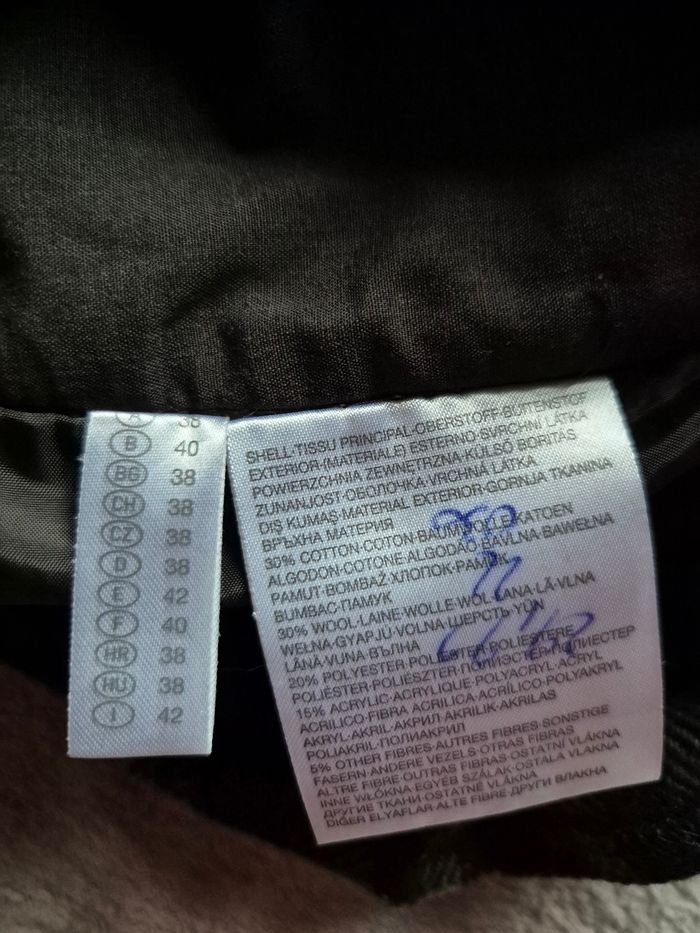 38
B 40
BG 38
CH 38
CZ 38
D 38
E 42
F 40
HR 38
HU 38
I 42
SHELL·TISSU PRINCIPAL·OBERSTOFF·BUITENSTOF
EXTERIOR·(MATERIALE) ESTERNO·SVRCHNÍ LÁTKA
POWIERZCHNIA ZEWNĘTRZNA·KÜLSŐ BORÍTÁS
ZUNANJOST·ОБОЛОЧКА·VRCHNÁ LÁTKA
DIŞ KUMAŞ·MATERIAL EXTERIOR·GORNJA TKANINA
ВРЪХНА МАТЕРИЯ
30% COTTON·COTON·BAUMWOLLE·KATOEN
ALGODON·COTONE·ALGODÃO·BAVLNA·BAWEŁNA
PAMUT·BOMBAŽ·ХЛОПОК·PAMUK
BUMBAC·ПАМУК
30% WOOL·LAINE·WOLLE·WOL·LANA·LÃ·VLNA
WEŁNA·GYAPJÚ·VOLNA·ШЕРСТЬ·YÜN
LÂNĂ·VUNA·ВЪЛНА
20% POLYESTER·POLIESTER·POLIESTERE
POLIÉSTER·POLIÉSZTER·ПОЛИЭСТЕР·ПОЛИЕСТЕР
15% ACRYLIC·ACRYLIQUE·POLYACRYL·ACRYL
ACRILICO·FIBRA ACRILICA·ACRÍLICO·POLYAKRYL
AKRYL·AKRIL·АКРИЛ·AKRILIK·AKRILAS
POLIAKRIL·ПОЛИАКРИЛ
5% OTHER FIBRES·AUTRES FIBRES·SONSTIGE
FASERN·ANDERE VEZELS·OTRAS FIBRAS
ALTRE FIBRE·OUTRAS FIBRAS·OSTATNÍ VLÁKNA
INNE WŁÓKNA·EGYÉB SZÁLAK·OSTALA VLAKNA
ДРУГИЕ ТКАНИ·OSTATNÉ VLÁKNA
DIĞER ELYAFLAR·ALTE FIBRE·ДРУГИ ВЛАКНА